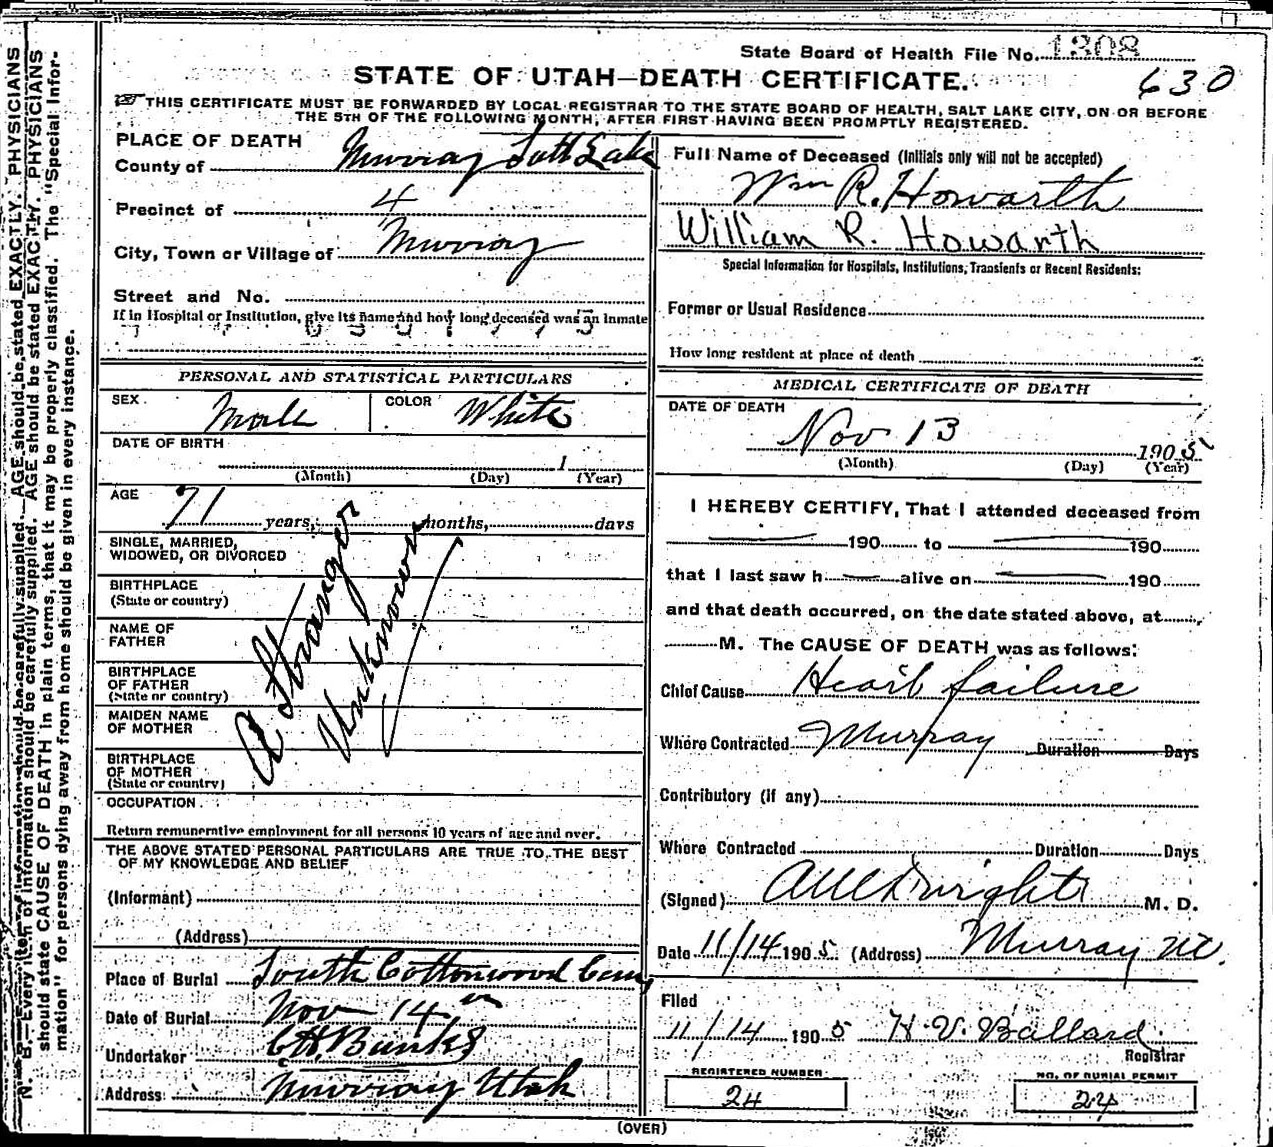 State Board of Health File No. 1308
STATE OF UTAH—DEATH CERTIFICATE.
630
THIS CERTIFICATE MUST BE FORWARDED BY LOCAL REGISTRAR TO THE STATE BOARD OF HEALTH, SALT LAKE CITY, ON OR BEFORE
THE 5TH OF THE FOLLOWING MONTH, AFTER FIRST HAVING BEEN PROMPTLY REGISTERED.
N. B.—Every item of information should be carefully supplied. AGE should be stated EXACTLY. PHYSICIANS
should state CAUSE OF DEATH in plain terms, that it may be properly classified. The "Special Infor-
mation" for persons dying away from home should be given in every instance.
PLACE OF DEATH
County of Murray Salt Lake
Precinct of 4
City, Town or Village of Murray
Street and No.
If in Hospital or Institution, give its name and how long deceased was an inmate
PERSONAL AND STATISTICAL PARTICULARS
SEX Male COLOR White
DATE OF BIRTH
1
(Month) (Day) (Year)
AGE 71 years, months, days
SINGLE, MARRIED,
WIDOWED, OR DIVORCED
BIRTHPLACE
(State or country)
NAME OF
FATHER
BIRTHPLACE
OF FATHER
(State or country)
MAIDEN NAME
OF MOTHER
BIRTHPLACE
OF MOTHER
(State or country)
A Stranger
Unknown
OCCUPATION
Return remunerative employment for all persons 10 years of age and over.
THE ABOVE STATED PERSONAL PARTICULARS ARE TRUE TO THE BEST
OF MY KNOWLEDGE AND BELIEF
(Informant)
(Address)
Place of Burial South Cottonwood Cem
Date of Burial Nov 14th
Undertaker
Address Murray Utah
Full Name of Deceased (Initials only will not be accepted)
Wm R. Howarth
William R. Howarth
Special Information for Hospitals, Institutions, Transients or Recent Residents:
Former or Usual Residence
How long resident at place of death
MEDICAL CERTIFICATE OF DEATH
DATE OF DEATH
Nov 13 1905
(Month) (Day) (Year)
I HEREBY CERTIFY, That I attended deceased from
190 to 190
that I last saw h alive on 190
and that death occurred, on the date stated above, at
M. The CAUSE OF DEATH was as follows:
Chief Cause Heart failure
Where Contracted Murray Duration Days
Contributory (if any)
Where Contracted Duration Days
(Signed) M. D.
Date 11/14 1905 (Address) Murray Ut.
Filed
11/14 1905 H. V. Ballard
Registrar
REGISTERED NUMBER
24
NO. OF BURIAL PERMIT
24
(OVER)